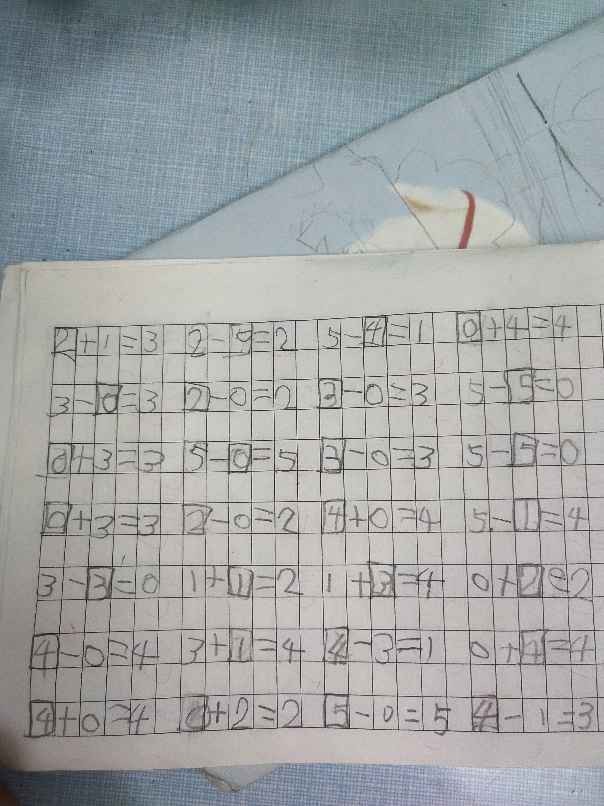 2+1=3 2-9=2 5-4=1 0+4=4
3-0=3 2-0=2 3-0=3 5-5=0
0+3=3 5-0=5 3-0=3 5-5=0
0+3=3 2-0=2 4+0=4 5-1=4
3-3=0 1+1=2 1+3=4 0+2=2
4-0=4 3+1=4 4-3=1 0+4=4
4+0=4 0+2=2 5-0=5 4-1=3